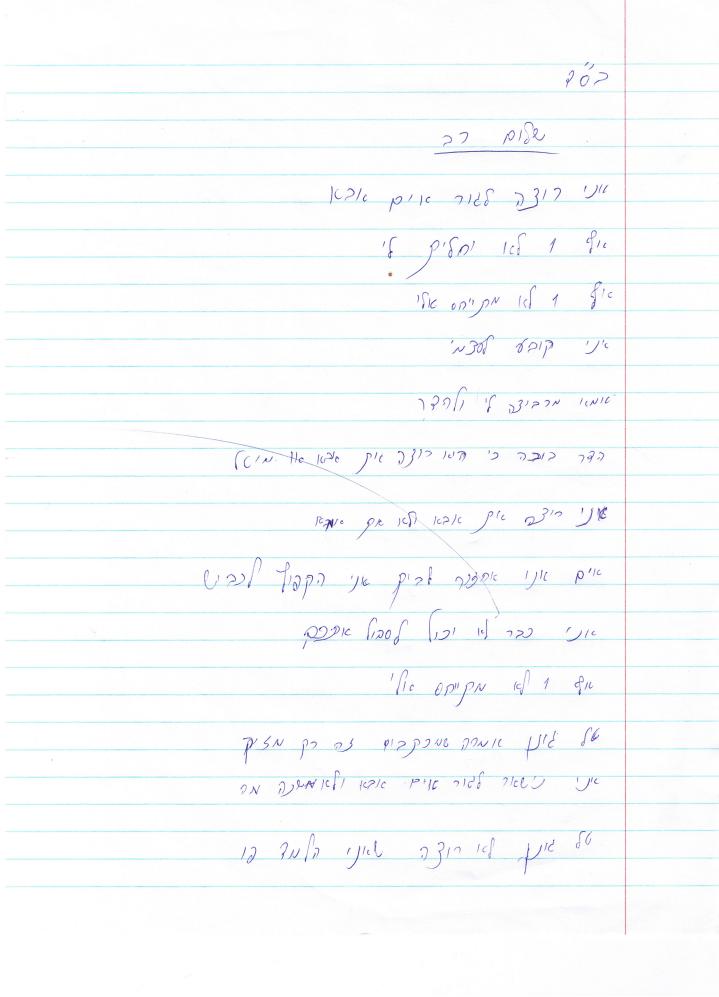 בס"ד
שלום רב
אני רוצה לגור אים אבא
אף 1 לא יחליט לי
איף 1 לא מתייחס אלי
אני קובע לעצמי
אמא מרביצה לי ולהדר
הדר בוכה כי היא רוצה את אבא מיטל
אני רוצה את אבא ולא את אמא
אים אני אחזור לביק אני הקפוץ לכביש
אני כבר לא יכול לסבול אתכם
אף 1 לא מתייחס אלי
טל גונן אמרה שמכקבים זה רק מזיק
אני נישאר לגור אים אבא ולא משנה מה
טל גונן לא רוצה שאני הלמד פו